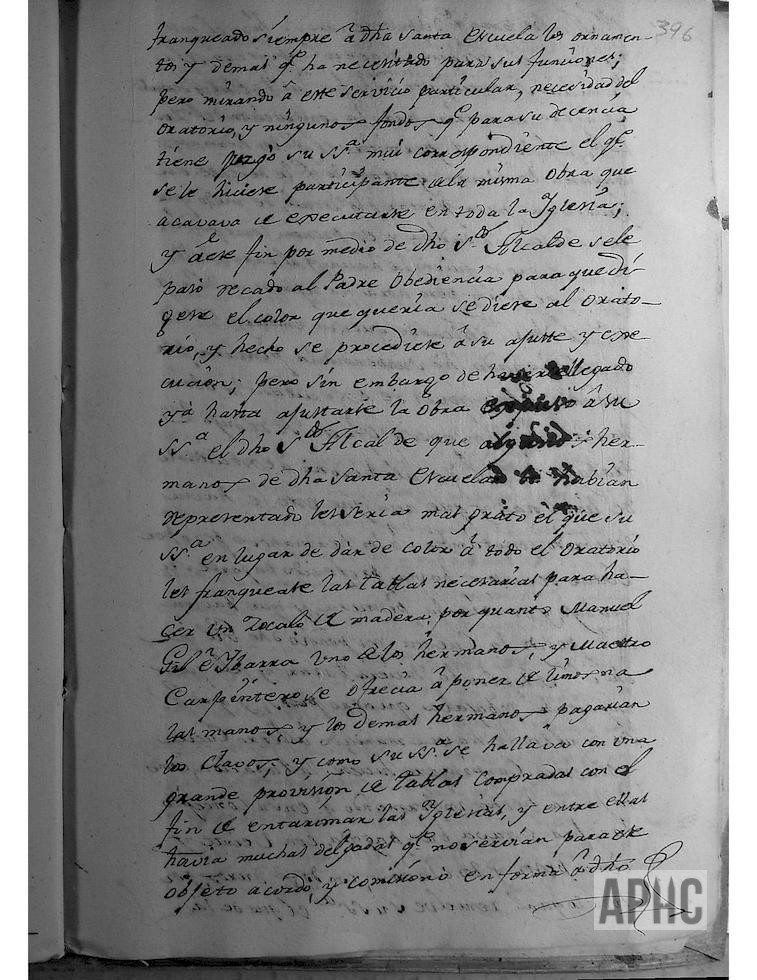 396
franqueado siempre â dha Santa Escuela los ornamen-
tos y demas q.e ha necesitado para sus funciones;
pero mirando â este servicio particular, necesidad del
Oratorio, y ningunos fondos q.e para su decencia
tiene juzgó su SS.a mui correspondiente el q.e
se le hiciese participante de la misma Obra que
acavava de executarse en toda la Yglesia;
y â este fin por medio de dho S.or Alcalde se le
pasó recado al Padre Obediencia para que di
gese el color que queria se diese al Orato-
rio, y hecho se procediese â su ajuste y exe
cucion; pero sin embargo de haverse llegado
yá hasta ajustarse la obra expuso â su
SS.a el dho S.or Alcalde que algunos her-
manos de dha Santa Escuela le habian
representado les seria mas grato el que su
SS.a en lugar de dár de color â todo el Oratorio
les franquease las tablas necesarias para ha-
cer un Zocalo de madera, por quanto Manuel
Gil e Ybarra uno de los hermanos, y Maestro
Carpintero se ofrecia â poner de limosna
las manos, y los demas hermanos pagarian
los Clavos, y como su SS.a se hallava con una
grande provisión de tablas compradas con el
fin de entarimar las Yglesias, y entre ellas
havia muchas delgadas q.e no servian para este
objeto acordó, y comisionó en forma â dho
APHC